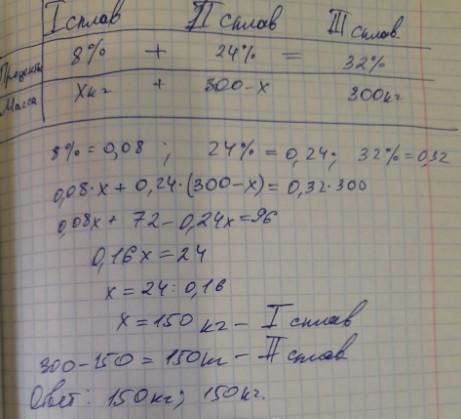 I сплав II сплав III сплав
Проценты 8% + 24% = 32%
Масса xкг + 300-x 300кг
8% = 0,08 ; 24% = 0,24; 32% = 0,32
0,08·x + 0,24·(300-x) = 0,32·300
0,08x + 72 - 0,24x = 96
0,16x = 24
x = 24:0,16
x = 150 кг - I сплав
300-150 = 150кг - II сплав
Ответ: 150кг; 150кг.